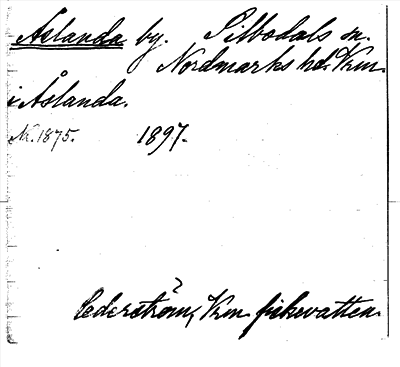 Åslanda by. Silbodals sn.
Nordmarks hd. Vrm.
i Åslanda.
Nr. 1875. 1897.
Cederström, Vrm. fiskevatten.